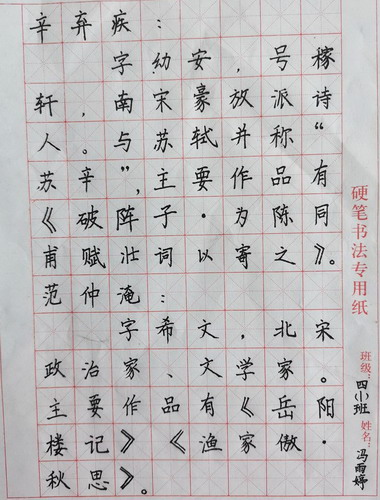 辛弃疾：
字幼安，号稼
轩，南宋豪放派诗
人。与苏轼并称“
苏辛”，主要作品有
《破阵子·为陈同
甫赋壮词以寄之》。
范仲淹：
字希文，北宋
政治家、文学家。
主要作品有《岳阳
楼记》《渔家傲·
秋思》。
硬笔书法专用纸
班级：四(小)班 姓名：冯雨婷